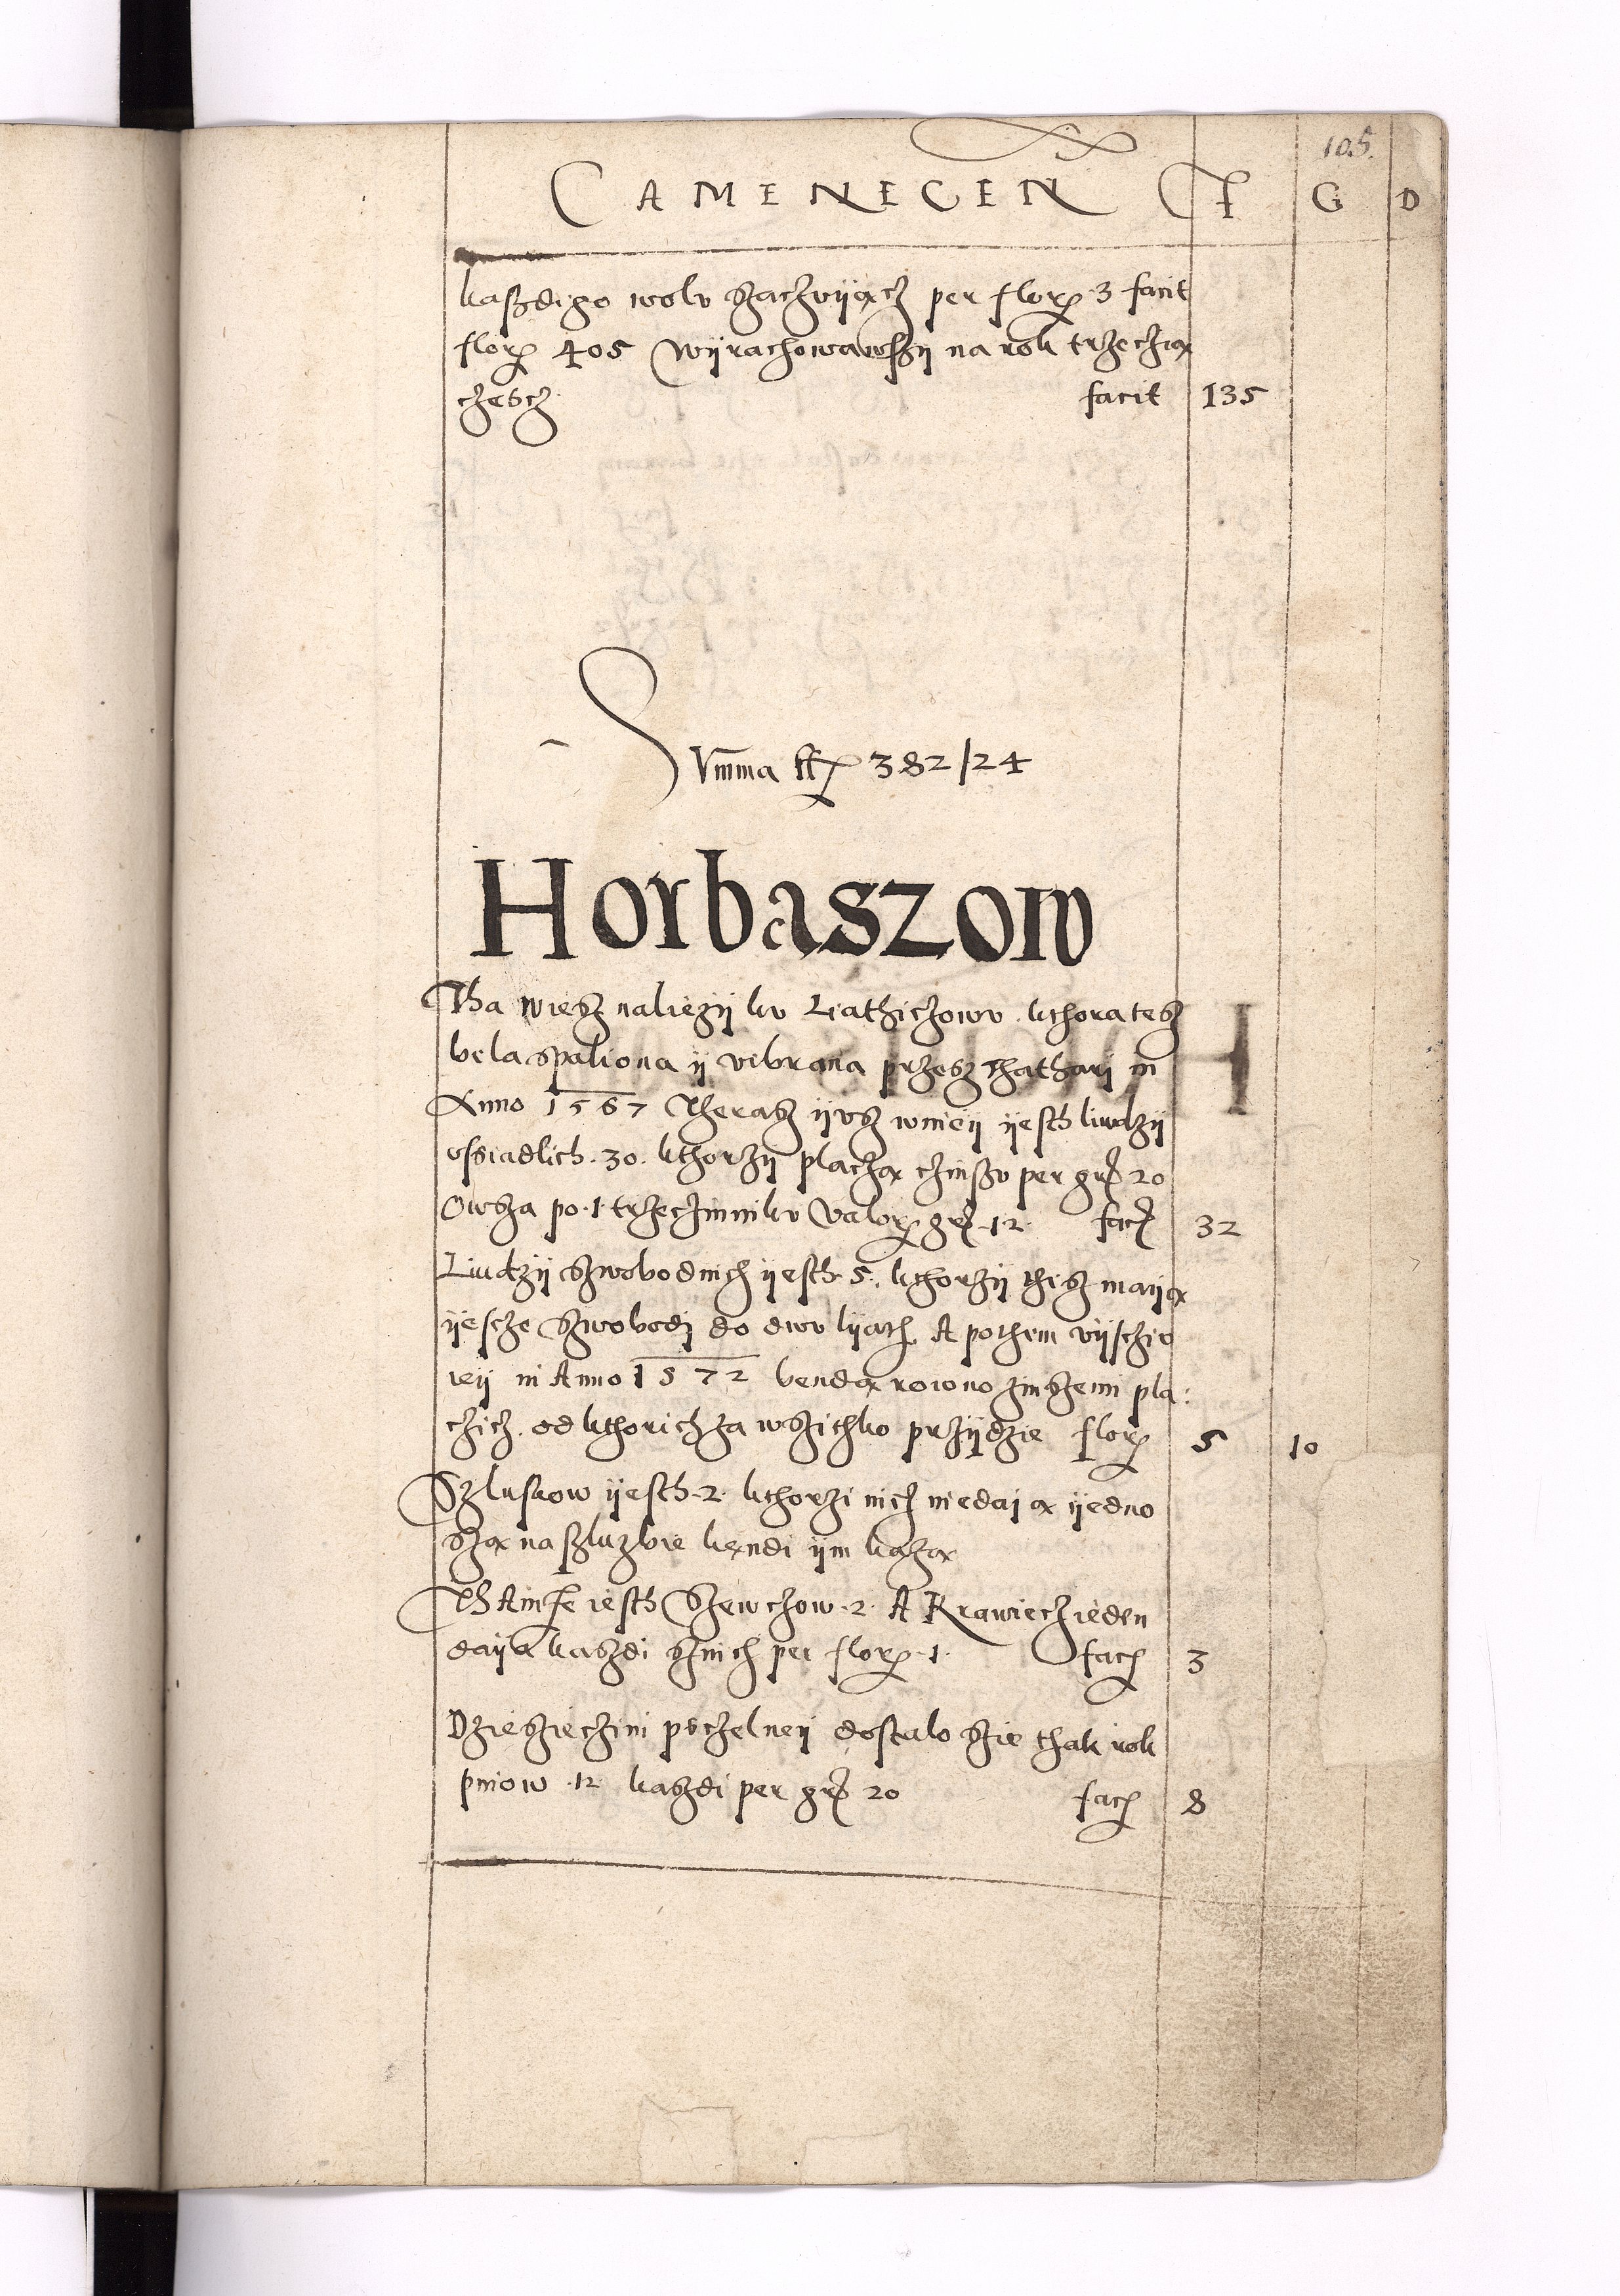 105.
CAMENECEN F G D
kaszdego wolv szaczvyącz per florֿ 3 facit
florֿ 405 Wyrachowawszy na rok trzeczią
czescz facit 135
Svmma ff 382/24
Horbaszow
Tha wiesz naliezy kv Liathiczowv kthora tesz
bela spaliona y vibrana przesz thathary in
Anno 1567 Therasz yvsz wniey yesth liudzy
ossiadlich 30 kthorzy placzą czinszv per grֿ 20
Owsza po 1 trzeczinnikv Valorֿ grֿ 12 facֿ 32
Liudzy szwobodnich yesth 5. kthorzy thesz mayą
yescze szwobodi do dwv lyath A pothem vysczio
iey in Anno 1572 bendą rowno zinszemi pla:
czicz. od kthorich za wszithko przydzie florֿ 5 10
Szluskow yesth 2 kthorzi nicz niedaią yedno
szą na szluzbie kendi ym każą
Thamże iesth Szewczow 2 A Krawiecz ieden
dayą kaszdi sznich per florֿ 1 facֿ 3
Dziesziecini psczelney dostalo szie thak rok
pniow 12 kaszdi per grֿ 20 facֿ 8